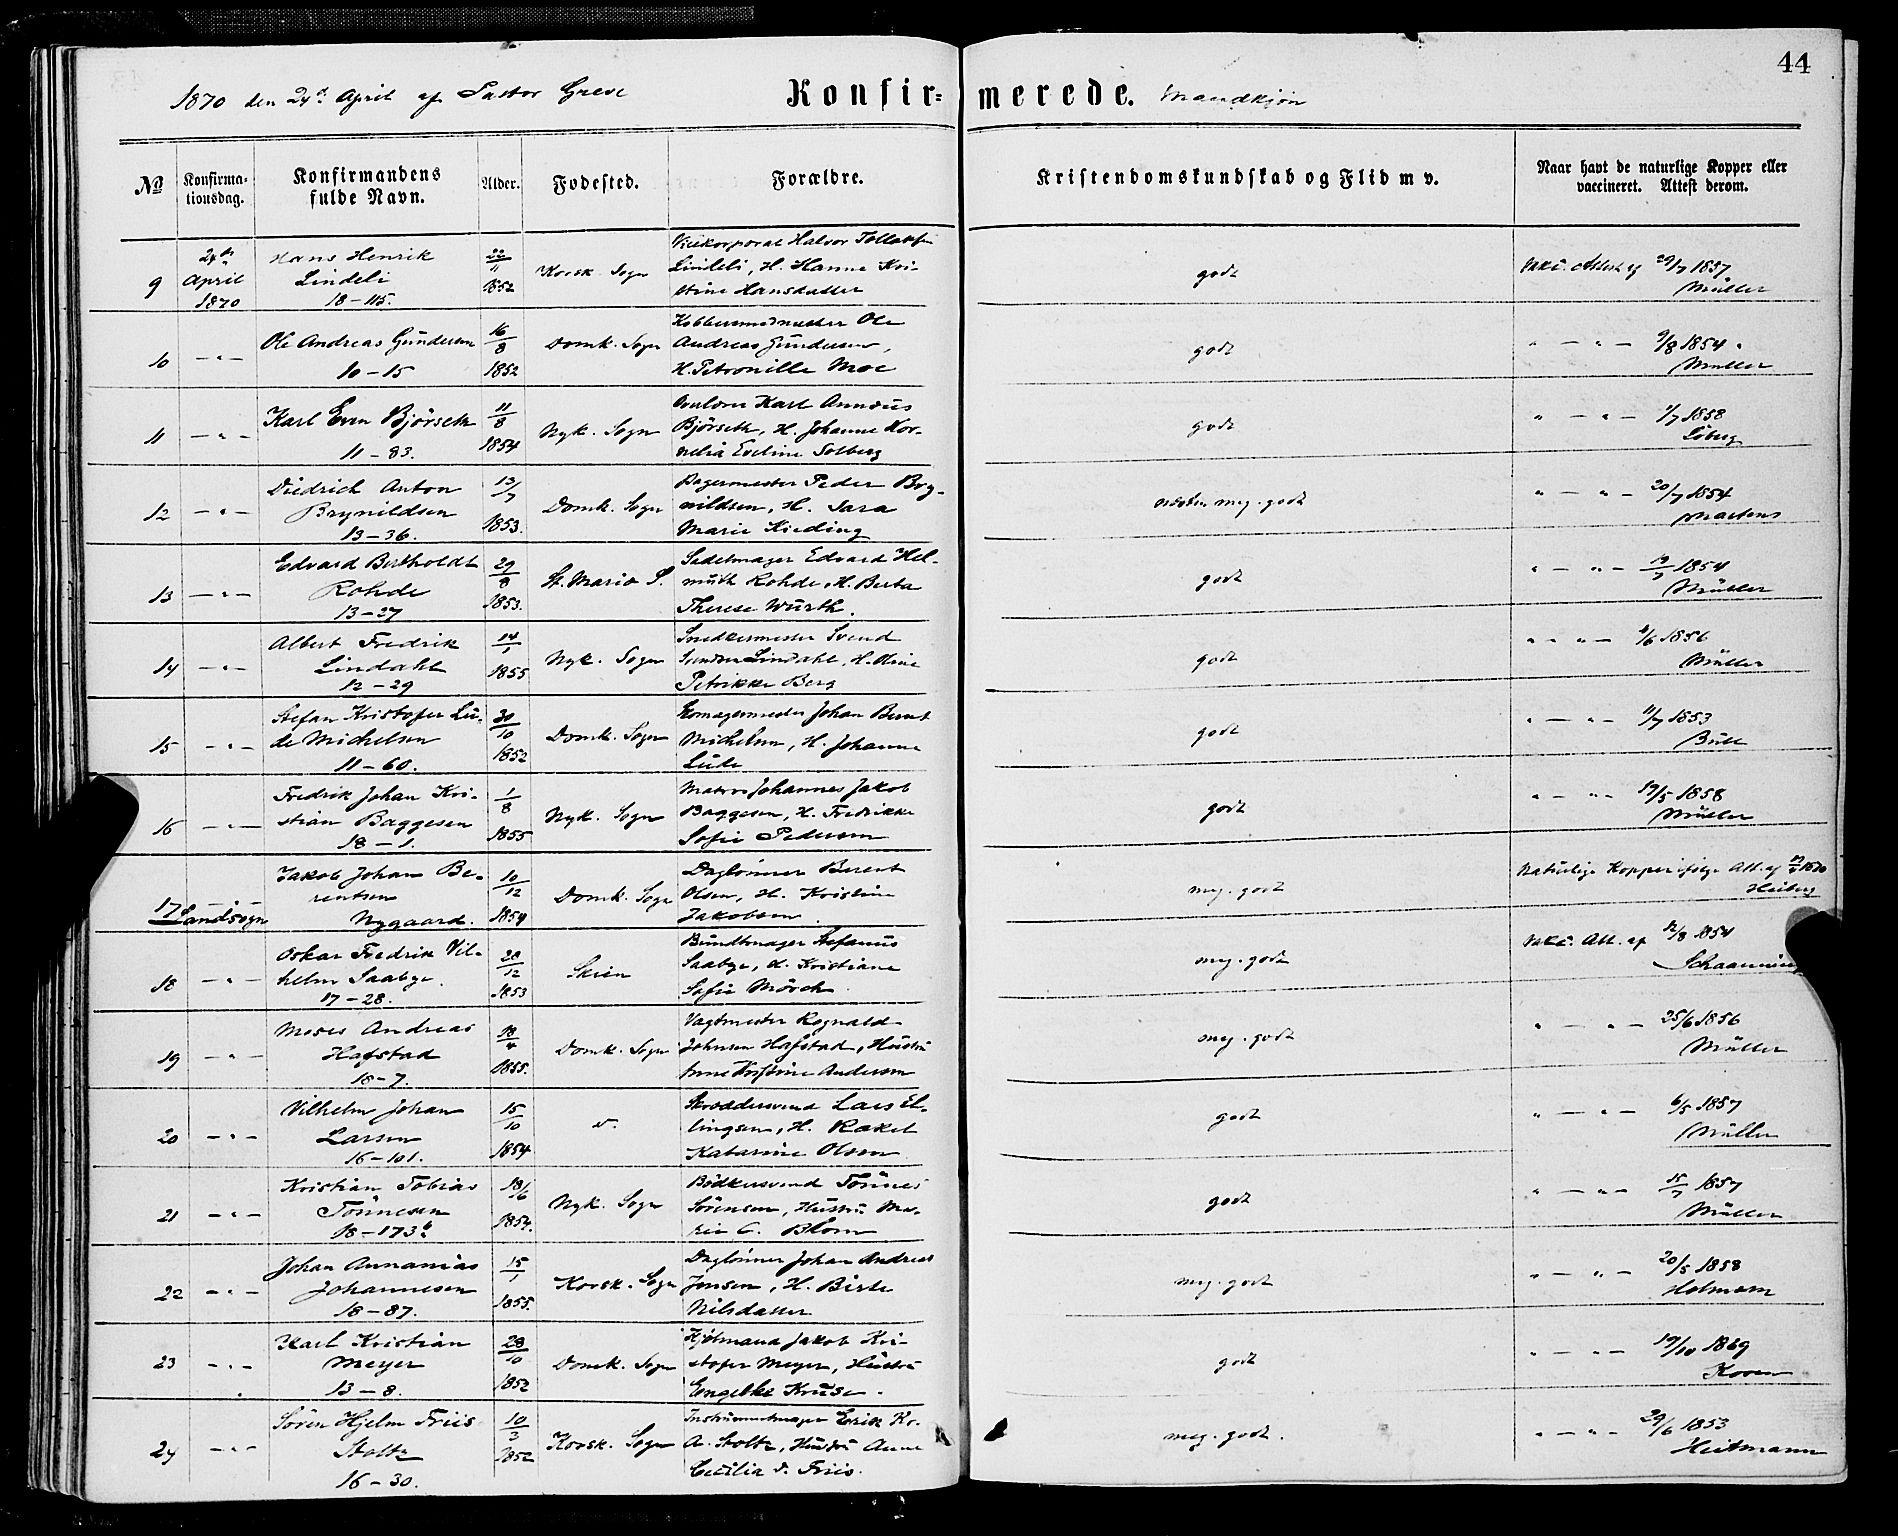 44
1870 den 24de April af Pastor Greve Konfir= merede. Mandkjøn
No Konfirma= tionsdag. Konfirmandens fulde Navn. Alder. Fødested. Forældre. Kristendomskundskab og Flid m v. Naar havt de naturlige Kopper eller vaccineret. Attest derom.
9 24de April 1870 Hans Henrik Lindeli 18-115. 22/11 1852 Korsk. Sogn Halvor Lindeli, H. Hanne Kri- stine Hansdatter godt Vakc. Attest af 29/7 1857 Müller
10 -"- Ole Andreas Gundersen 10-15 16/8 1852 Domk. Sogn Kobbersmedmester Ole Andreas Gundersen, H. Petronille Moe godt " - " - 9/8 1854 Müller
11 -"- Karl Even Bjørseth 11-83. 11/8 1854 Nyk. Sogn Karl Bjørseth, H. Johanne Kor- nelia Eveline Solberg godt " - " - 1/7 1858 Løberg
12 -"- Diedrich Anton Brynildsen 13-36. 13/7 1853. Domk. Sogn Bagermester Peder Bry- nildsen, H. Sara Marie Kieding næsten meg. godt " - " - 20/7 1854 Martens
13 -"- Edvard Bertholdt Rohde 13-27 29/8 1853. St. Maria S. Sadelmager Edvard Hel- muth Rohde, H. Berta Therese Wurth. godt " - " - 19/7 1854 Müller
14 -"- Albert Fredrik Lindahl 12-29 14/1 1855 Nyk. Sogn Snedkermester Svend Lindahl, H. Oline Petrikke Berg godt " - " - 4/6 1856 Müller
15 -"- Stefan Kristofer Lü- de Michelsen 11-60. 30/10 1852 Domk. Sogn Johan Bernt Michelsen, H. Johanne Lüde godt " - " - 11/7 1853 Bull
16 -"- Fredrik Johan Kri- stian Baggesen 18-1. 1/8 1855 Nyk. Sogn Matros Johannes Jakob Baggesen, H. Fredrikke Sofie Pedersen godt " - " - 19/5 1858 Müller
17 Landsogn Jakob Johan Be- rentsen Nygaard. 10/12 1854 Domk. Sogn Daglønner Berent Olsen, H. Kristine Jakobsen meg. godt Naturlige Kopper ifølge Att. af 1870 Heiberg
18 -"- Oskar Fredrik Vil- helm Saabye. 17-28. 28/12 1853 Skien Bundtmager Stefanus Saabye, H. Kristiane Sofie Mørch meg. godt Vakc. Att. af 12/8 1854 Schaanning
19 -"- Moses Andreas Hafstad 18-7. 18/4 1855. Domk. Sogn Vagtmester Rognald Johnsen Hafstad, Hustru Anne Kristine Andersen meg. godt " - " - 25/6 1856 Müller
20 -"- Vilhelm Johan Larsen 16-101. 15/10 1854 Skræddersvend Lars El- lingsen, H. Rakel Katarine Olsen godt " - " - 6/5 1857 Müller
21 -"- Kristian Tobias Tønnesen 18-173b 18/6 1854. Nyk. Sogn Bødkersvend Tønnes Sørensen, Hustru Ma- rie C. Blom godt " - " - 15/7 1857 Müller
22 -"- Johan Annanias Johannesen 18-87. 15/1 1855. Korsk. Sogn Daglønner Johan Andreas Jensen, H. Birte Nilsdatter meg. godt " - " - 20/5 1858 Holmsen
23 -"- Karl Kristian Meyer 13-8. 28/10 1852 Domk. Sogn Kjøbmand Jakob Kri- stofer Meyer, Hustru Engelke Kruse. godt " - " - 19/10 1869 Koren
24 -"- Søren Hjelm Friis Stoltz 16-30. 10/3 1852 Korsk. Sogn Instrumentmager Erik Kr. A. Stoltz, Hustru Anne Cecilia d. Friis. meg. godt. " - " - 29/6 1853 Heitmann